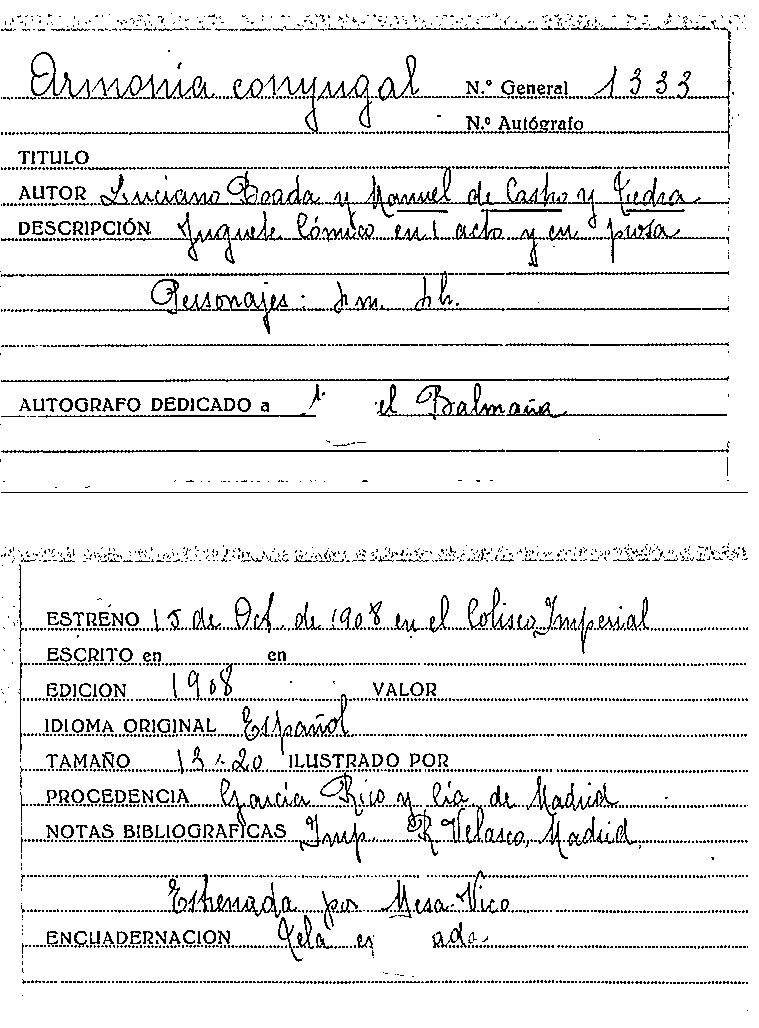 Armonia conyugal N.º General 1333
N.º Autógrafo
TITULO
AUTOR Luciano Boada y Manuel de Castro y Tiedra
DESCRIPCIÓN Juguete Cómico en 1 acto y en prosa
Personajes: m. h.
AUTOGRAFO DEDICADO a el Balmaña
ESTRENO 15 de Oct. de 1908 en el Coliseo Imperial
ESCRITO en en
EDICION 1908 VALOR
IDIOMA ORIGINAL Español
TAMAÑO 13 x 20 ILUSTRADO POR
PROCEDENCIA García Rico y Cía, de Madrid
NOTAS BIBLIOGRAFICAS Imp. R Velasco, Madrid
Estrenada por Mesa-Vico
ENCUADERNACION Tela